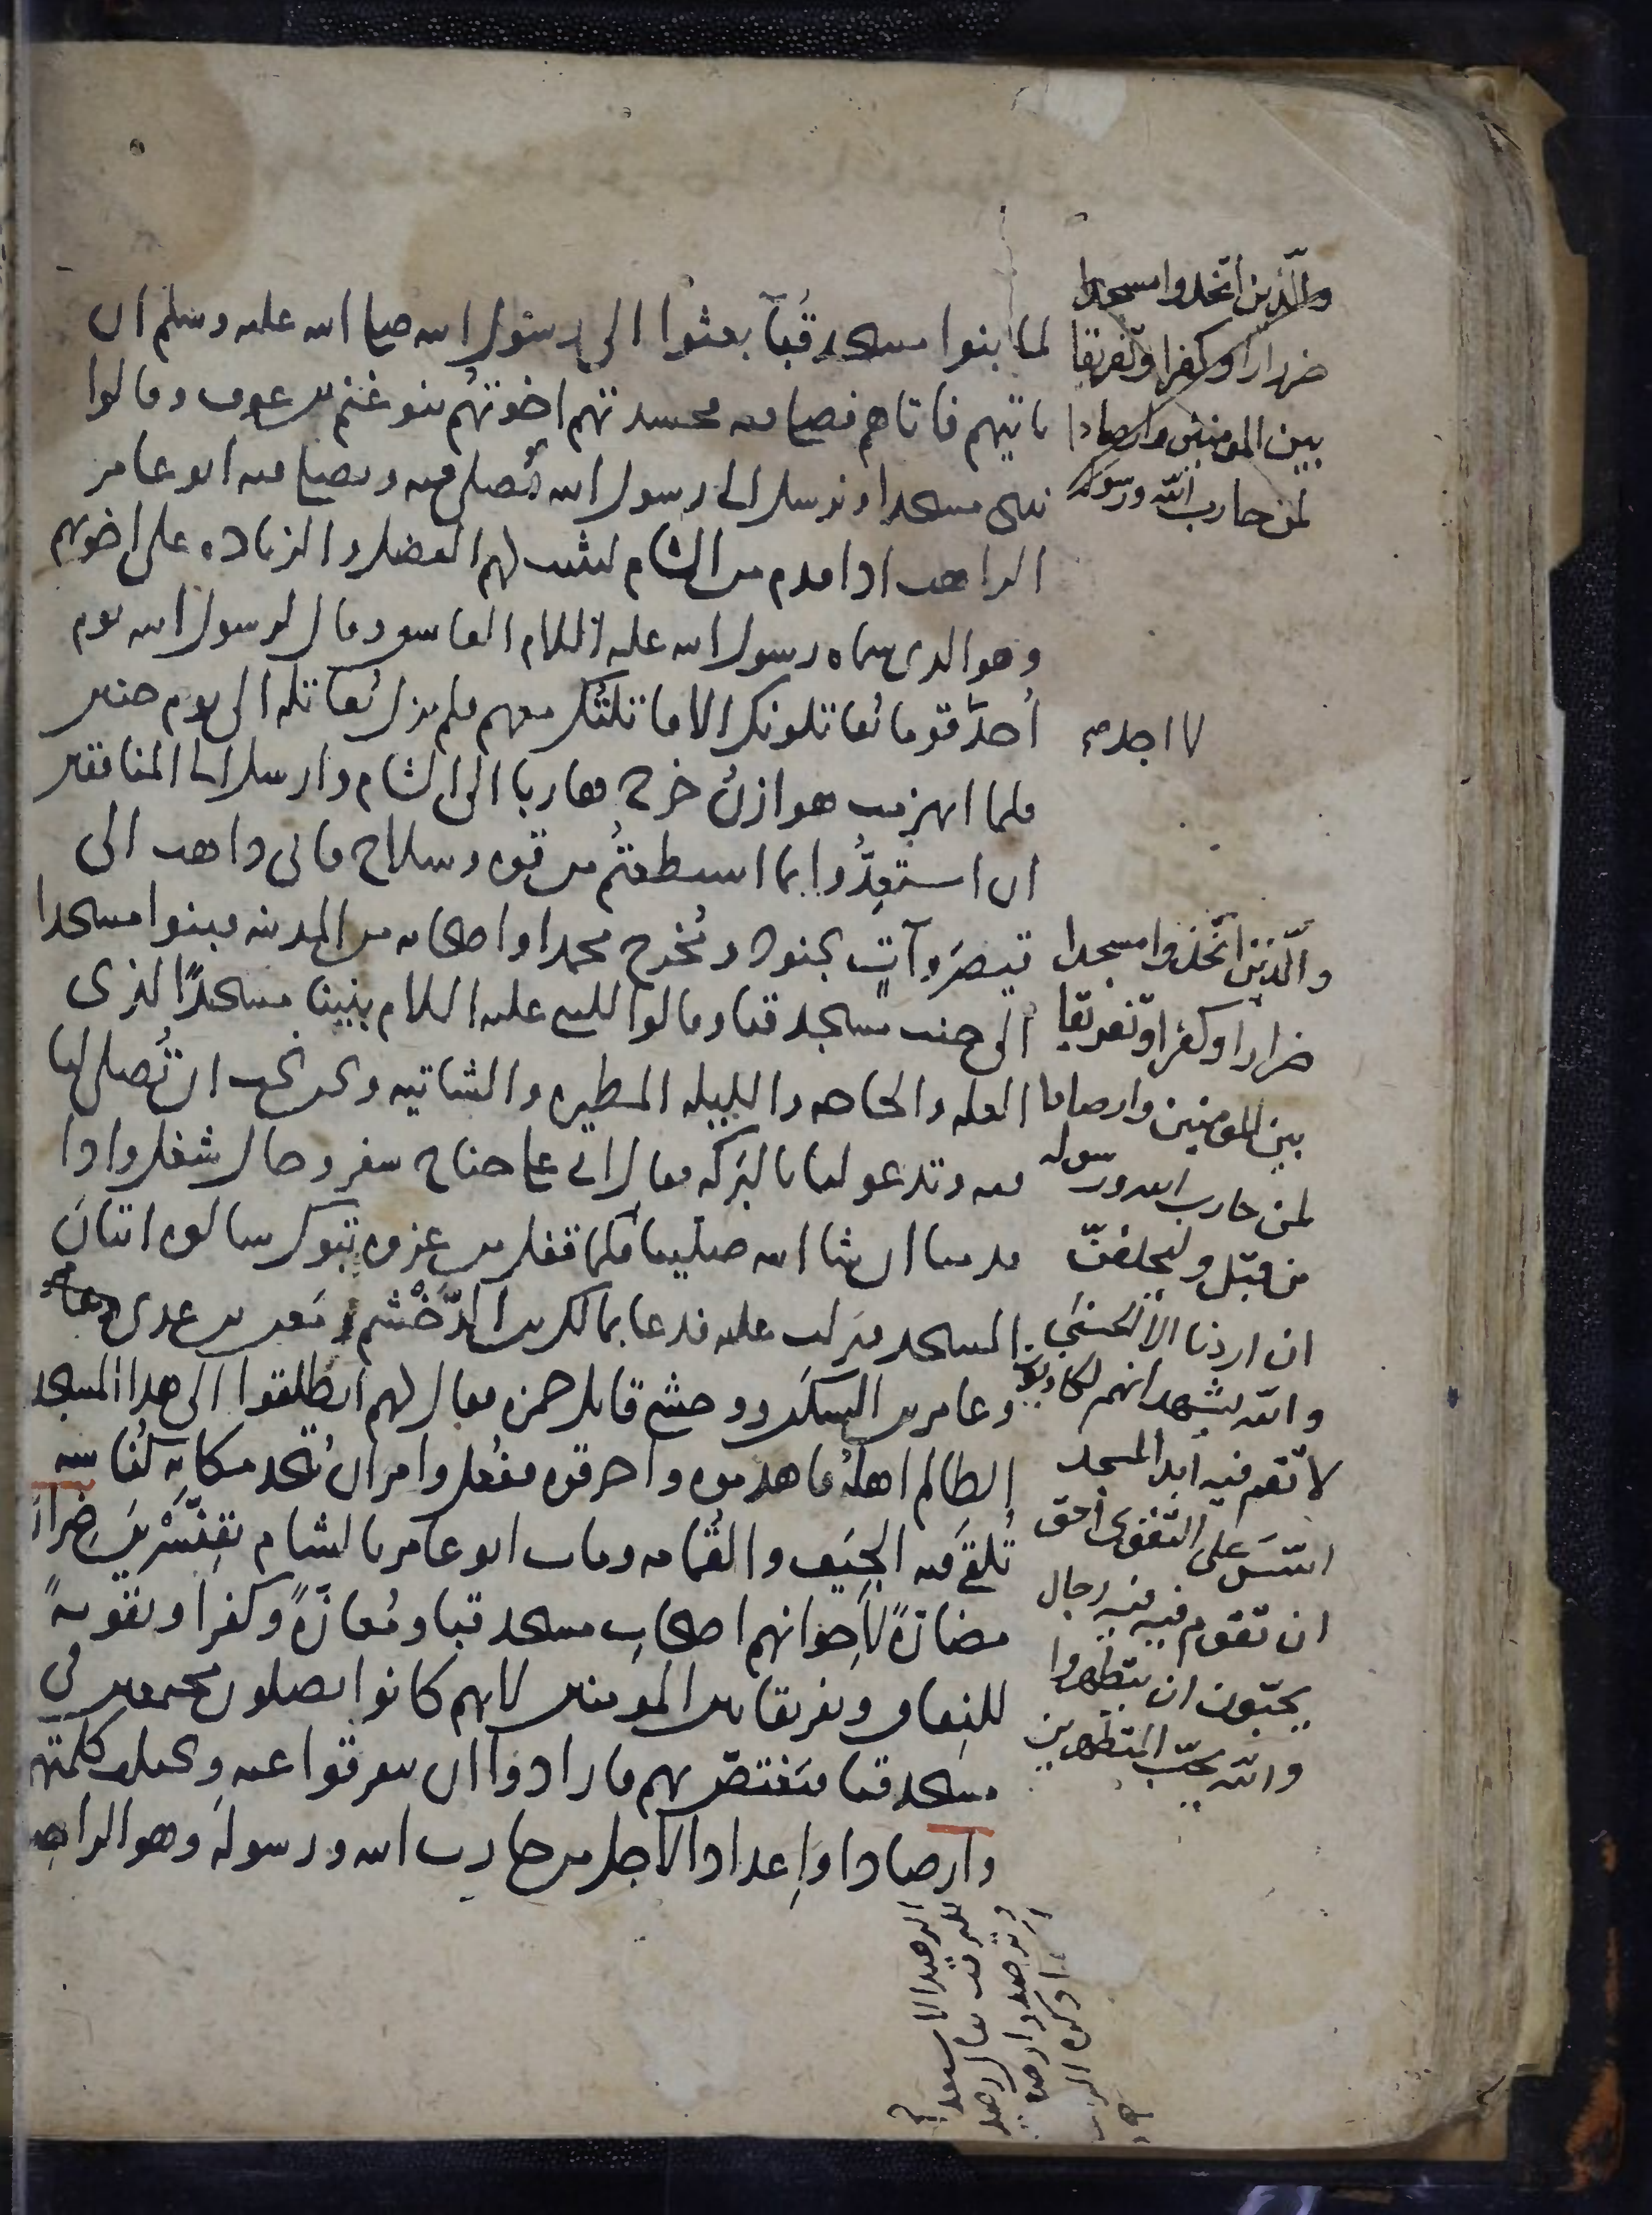 والذين اتخذوا مسجدا
ضرارا وكفرا وتفريقا
بين المومنين وارصادا
لمن حارب الله ورسوله
لما بنوا مسجد قبآ بعثوا الى رسول الله صلى الله عليه وسلم ان
ياتيهم فاتاهم فصلى فيه فحسدتهم اخوتهم بنو غنم بن عوف وقالوا
نبنى مسجدا ونرسل الى رسول الله يُصلى فيه ويصلى فيه ابو عامر
الراهب اذا قدم من الشام ليثبت لهم الفضل والزيادة على اخوتهم
وهو الذى سماه رسول الله عليه السلام الفاسق وقال لرسول الله يوم
أُحد لا اجد قوما يُقاتلونك الا قاتلتُك معهم فلم يزل يُقاتله الى يوم حنين
فلما انهزمت هوازنُ خرج هاربا الى الشام وارسل الى المنافقين
ان استعِدُّوا بما استطعتُم من قوة وسلاح فانى ذاهب الى
قيصَر وآتٍ بجنود ومُخرج محمدا واصحابه من المدينه فبنوا مسجدا
الى جنب مسجد قبا وقالوا للنبى عليه السلام بنينا مسجدًا لذى
العله والحاجه والليله المطيره والشاتيه ونحن نحب ان تُصلى لنا
فيه وتدعو لنا بالبَركه فقال انى على جناح سفر وحال شغل واذا
قدمنا ان شا الله صلينا فيه فلما قفل من غزوه تبوك سالوه اتيانَ
المسجد فنزلت عليه فدعا بمالك بن الدُّخْشم ومَعن بن عدى
وعامر بن السكَن ووحشى قاتل حمزه فقال لهم انطلقوا الى هذا المسجد
الظالم اهلُهُ فاهدموه واحرقوه ففُعل وامر ان يُتخد مكانه كُناسه
تُلقى فيه الجِيَف والقُمامه ومات ابو عامر بالشام بقِنَّسْرِينَ ضِرارًا
مضارّةً لاخوانهم اصحابِ مسجد قبا ومُعازّةً وكفرا وتقويةً
للنِفاق وتفريقا بين المومنين لانهم كانوا يصلون مجتمعين فى
مسجد قبا فيَغتصّ بهم فارادوا ان يتفرقوا عنه وتختلف كلمتهم
وارصادا وإعدادا لاجل من حارب الله ورسوله وهو الراهب
والّذين اتّخذوا مسجدا
ضرارا وكفرا وتفريقا
بين المومنين وارصادا
لمن حارب الله ورسوله
من قبل وليحلفنّ
ان اردنا الا الحسنى
والله يشهد انهم لكاذبون
لا تقم فيه ابدا لمسجد
اسّسَ على التقوى احق
ان تقوم فيه فيه رجال
يحبّون ان يتطهروا
والله يحبّ المتطهرين